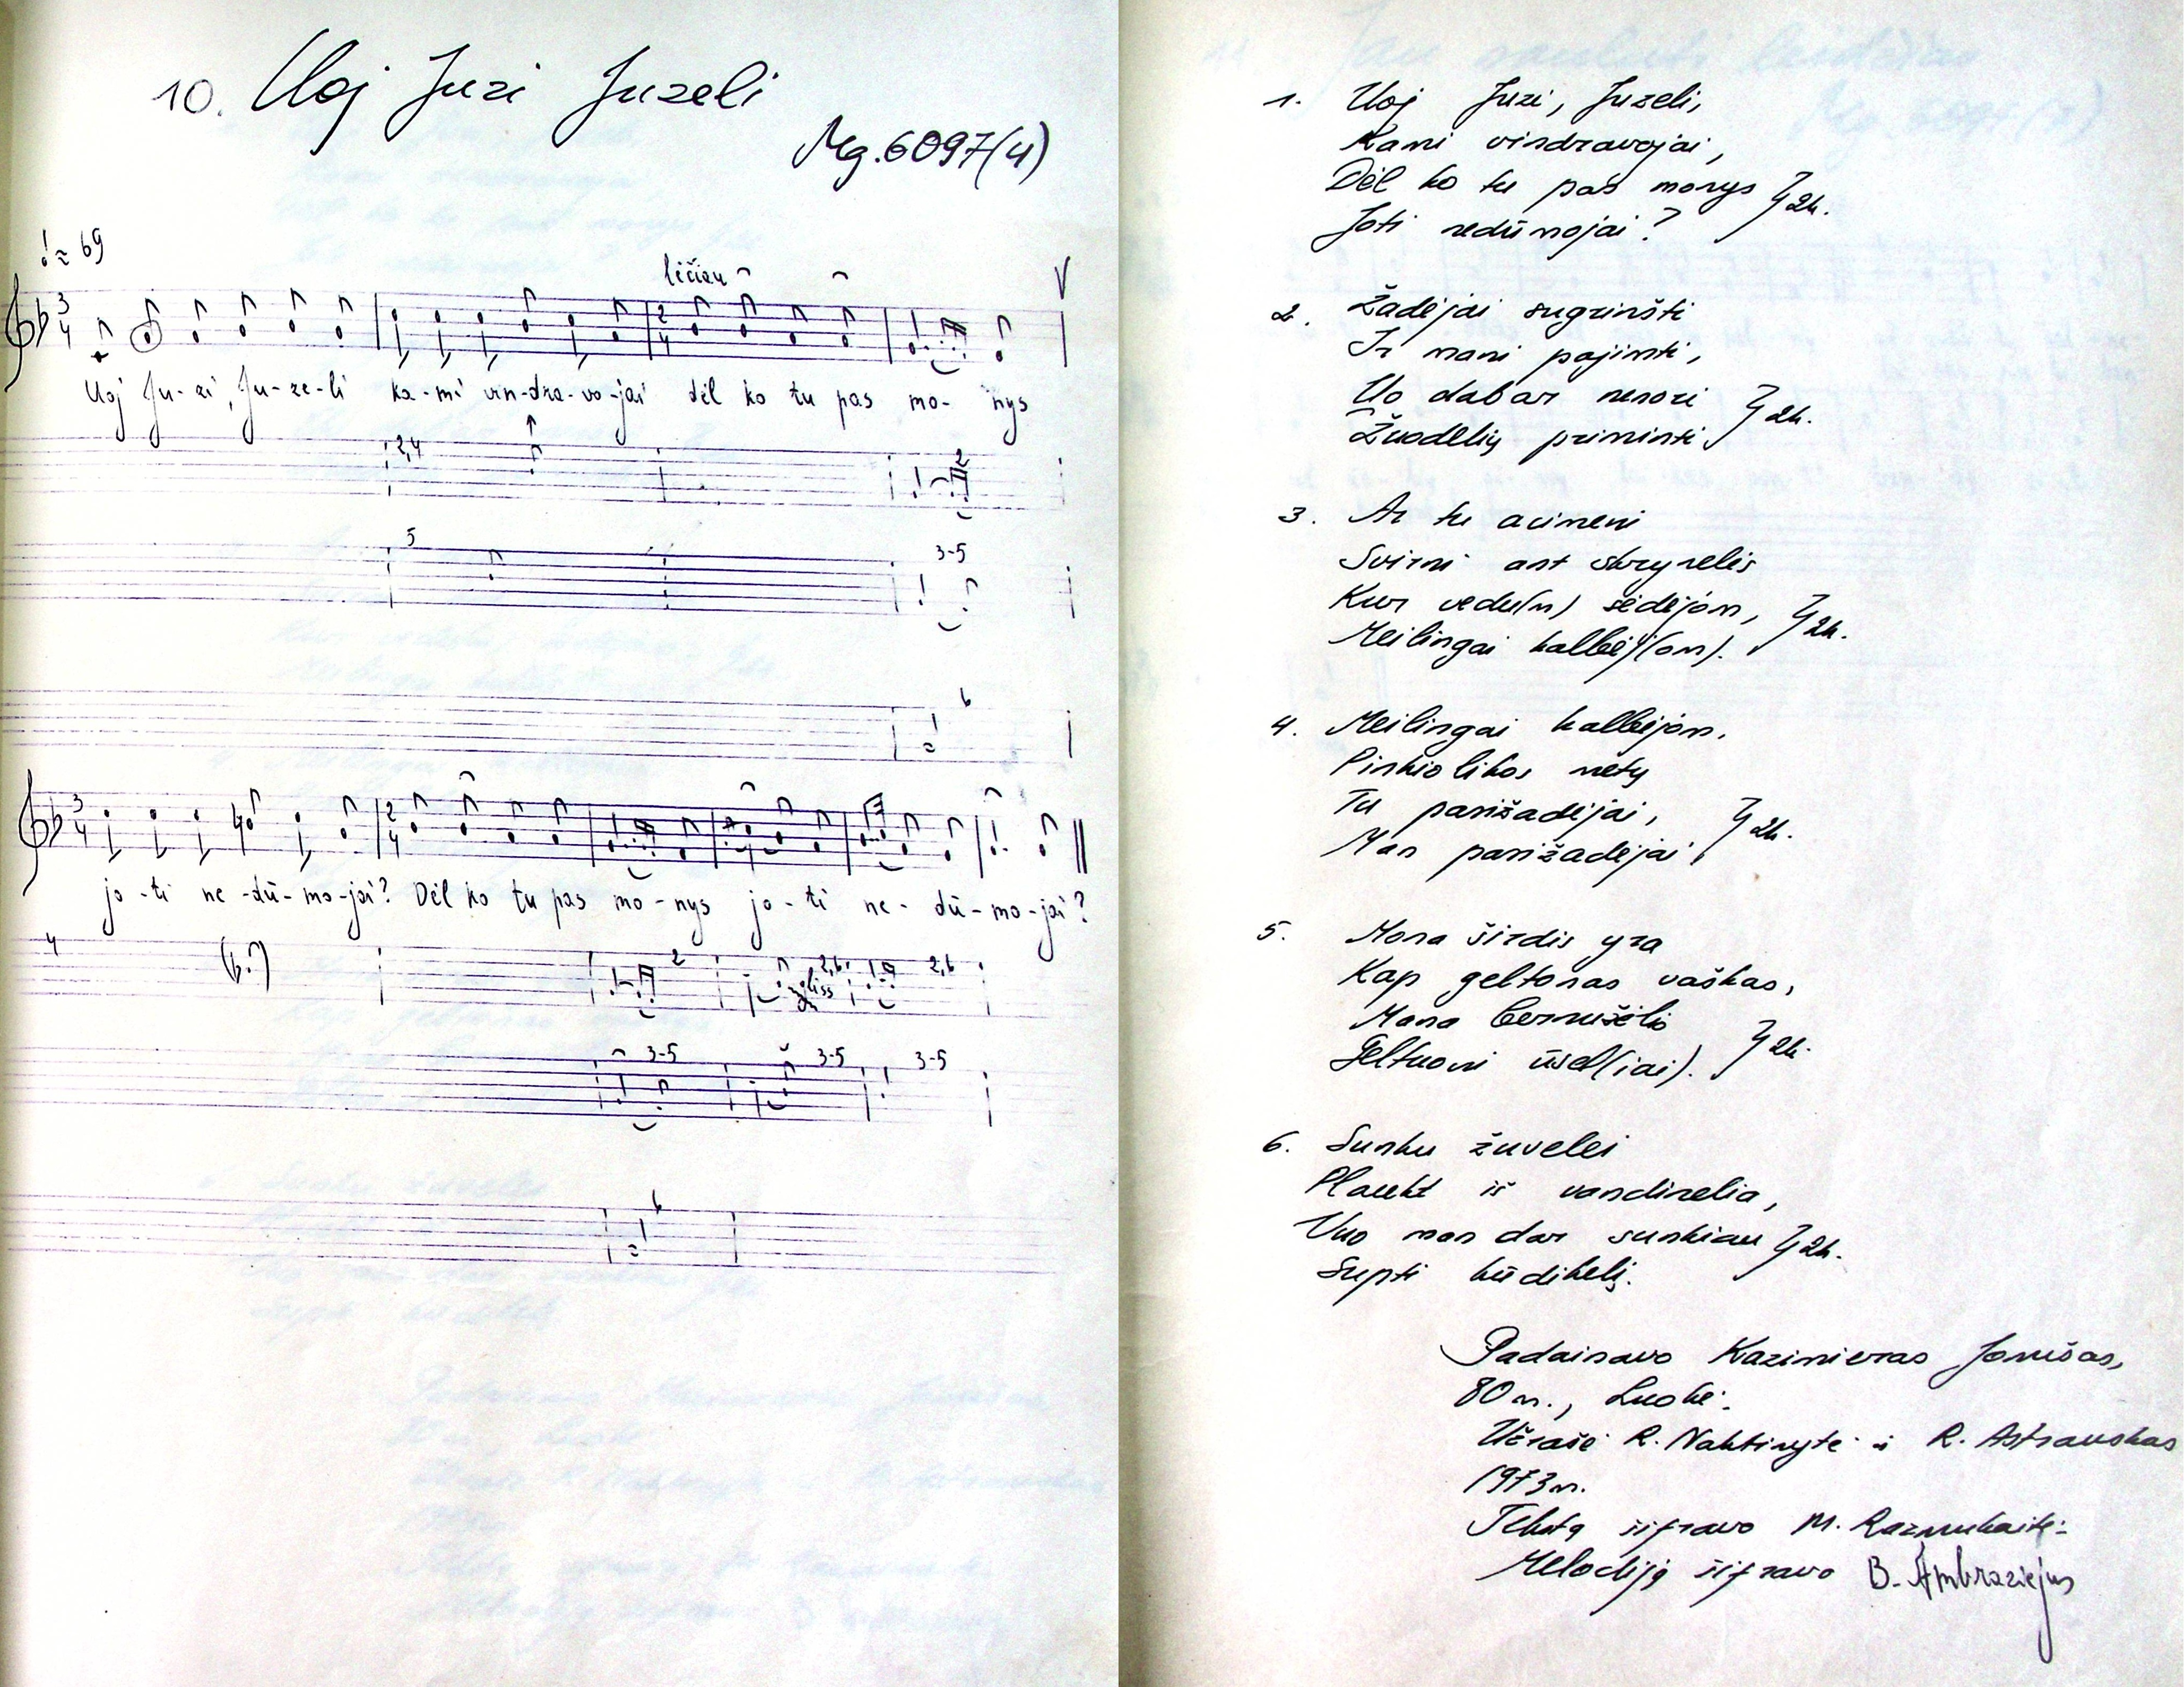 10. Uoj Juzi Juzeli
Mg.6097(4)
≈ 69
lėčiau
3
4
2
4
Uoj Ju-zi, Ju-ze-li ka-mi vin-dra-vo-jai dėl ko tu pas mo- nys
2,4
2
5
3-5
6
3
4
2
4
jo-ti ne-dū-mo-jai? Dėl ko tu pas mo-nys jo-ti ne- dū-mo-jai?
4
2
2,6
gliss
2,6
3-5
3-5
3-5
6
1. Uoj Juzi, Juzeli,
Kami vindravojai,
Dėl ko tu pas monys
Joti nedūmojai? } 2k.
2. Žadėjai sugrinšti
Ir mani pajimti,
Uo dabar nenori
Žuodelių priminti. } 2k.
3. Ar tu acimeni
Svirni ant skrynelės
Kur vedu(n) sėdėjom,
Meilingai kalbėj(om). } 2k.
4. Meilingai kalbėjom.
Pinkiolikos metų
Tu parižadėjai,
Man parižadėjai. } 2k.
5. Mona širdis yra
Kap geltonas vaškas,
Mana bernužėlio
Geltuoni ūsel(iai). } 2k.
6. Sunku žuvelei
Plaukt iš vandinelia,
Vuo man dar sunkiau
Supti kūdikelį. } 2k.
Padainavo Kazimieras Jonušas,
80 m., Luokė.
Užrašė R. Naktinytė ir R. Astrauskas
1973 m.
Tekstą šifravo M. Razmukaitė
Melodiją šifravo B. Ambraziejus